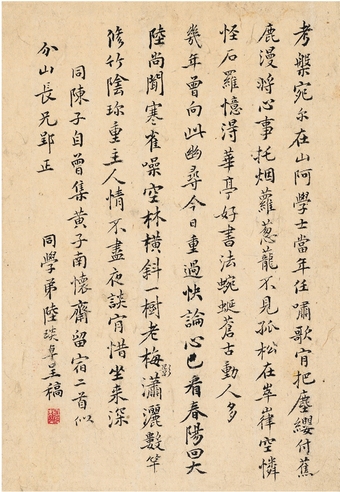 考槃宛尔在山阿學士當年任嘯歌肯把塵纓付蕉
鹿漫將心事托烟蘿蔥蘢不見孤松在崒嵂空憐
怪石羅憶得華亭好書法蜿蜒蒼古動人多
幾年曾向此幽尋今日重過快論心已看春陽回大
陸尚聞寒雀噪空林橫斜一樹老梅影瀟灑數竿
脩竹陰珍重主人情不盡夜談肯惜坐來深
同陳子自曾集黃子南懷齋留宿二首似
分山長兄郢正
同學弟陸琰卓呈稿